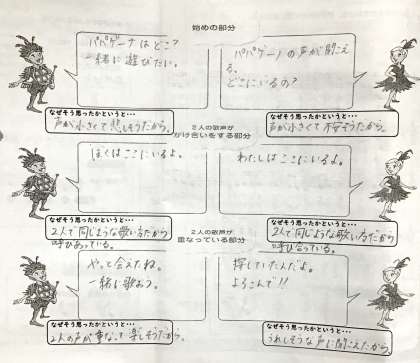 始めの部分
パパゲーナはどこ?
一緒に遊びたい。
パパゲーノの声が聞こえ
る。
どこにいるの?
なぜそう思ったかというと…
声が小さくて悲しそうだから。
なぜそう思ったかというと…
声が小さくて不安そうだから。
2人の歌声が
かけ合いをする部分
ぼくはここにいるよ。
わたしはここにいるよ。
なぜそう思ったかというと…
2人で同じような歌い方だから
呼びあっている。
なぜそう思ったかというと…
2人で同じような歌い方だから
呼び合っている。
2人の歌声が
重なっている部分
やっと会えたね。
一緒に歌おう。
探していたんだよ。
よろこんで!!
なぜそう思ったかというと…
2人の声が重なって楽しそうだから。
なぜそう思ったかというと…
うれしそうな声に聞こえたから。